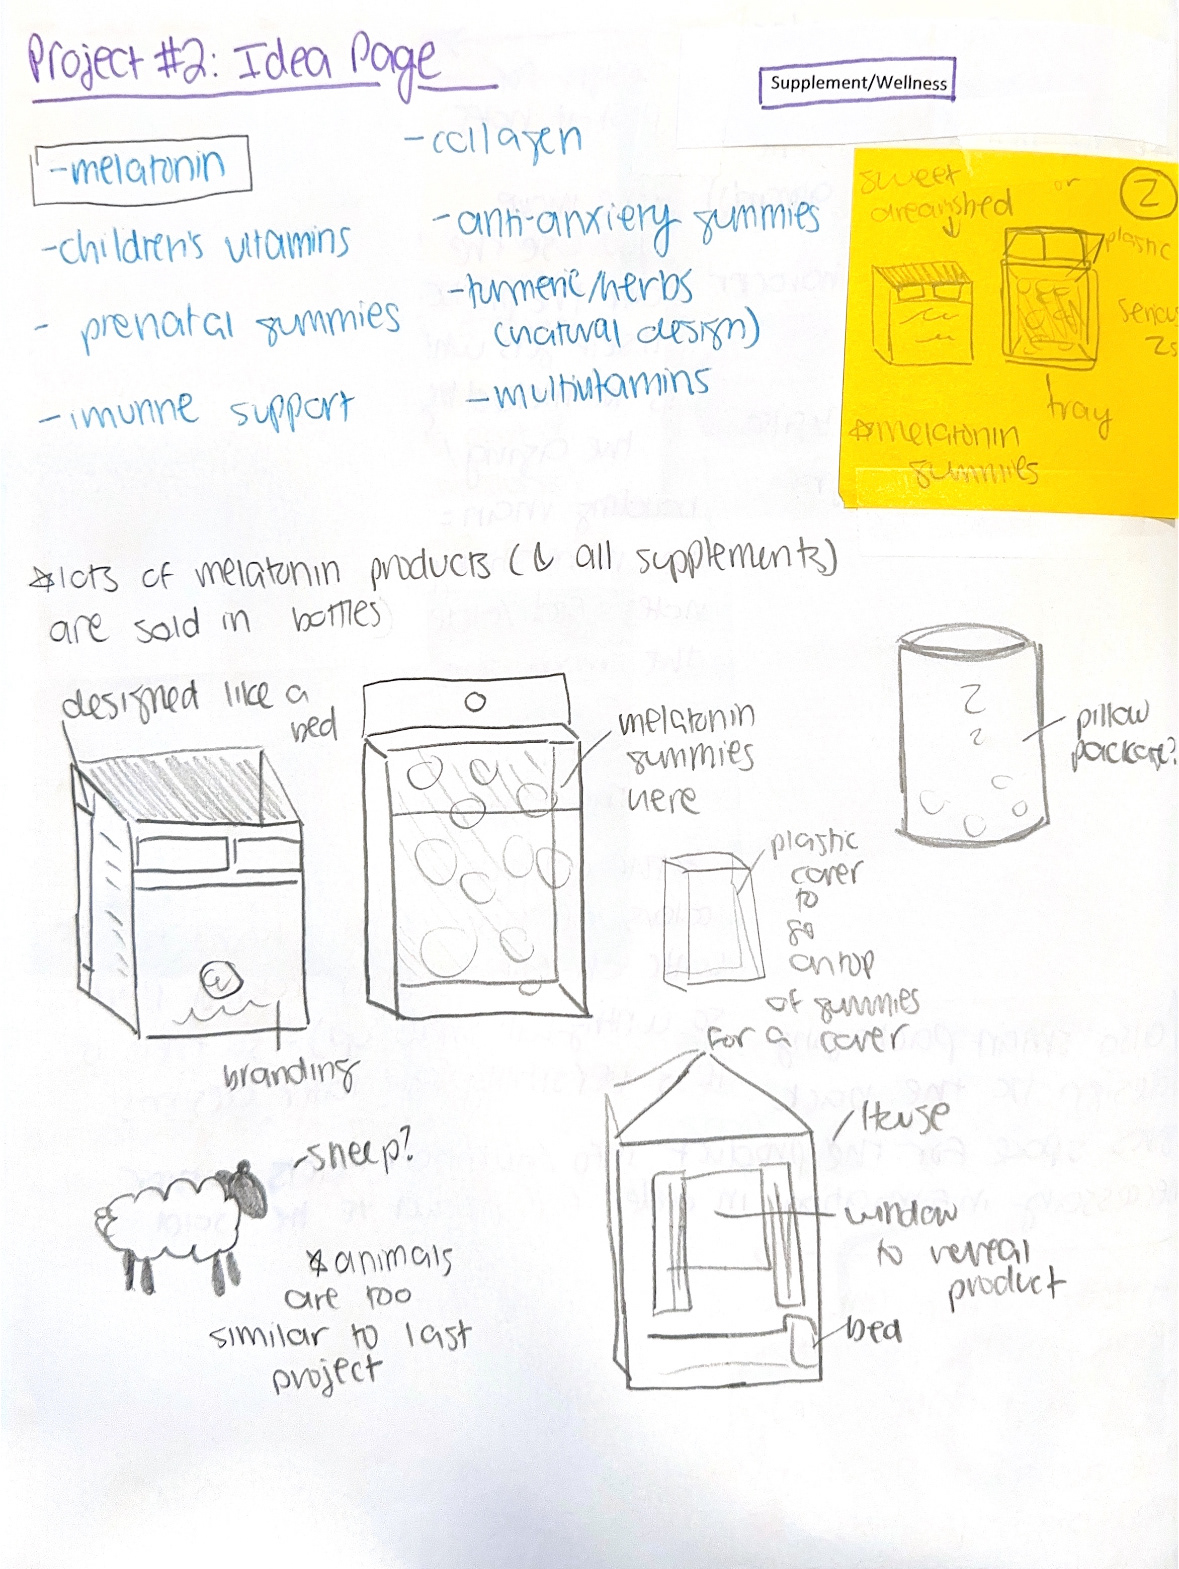 Project #2: Idea Page
Supplement/Wellness
-melatonin
-children's vitamins
- prenatal gummies
-imunne support
-collagen
-anti-anxiety gummies
-turmeric/herbs
(natural design)
-multivitamins
sweet
or
2
dreams
bed
plastic
tray
*melatonin
gummies
*lots of melatonin products (& all supplements)
are sold in bottles
designed like a
bed
melatonin
gummies
here
Z
z
pillow
package?
plastic
cover
to
go
on top
of gummies
for a cover
branding
-sheep?
*animals
are too
similar to last
project
House
window
to reveal
product
bed